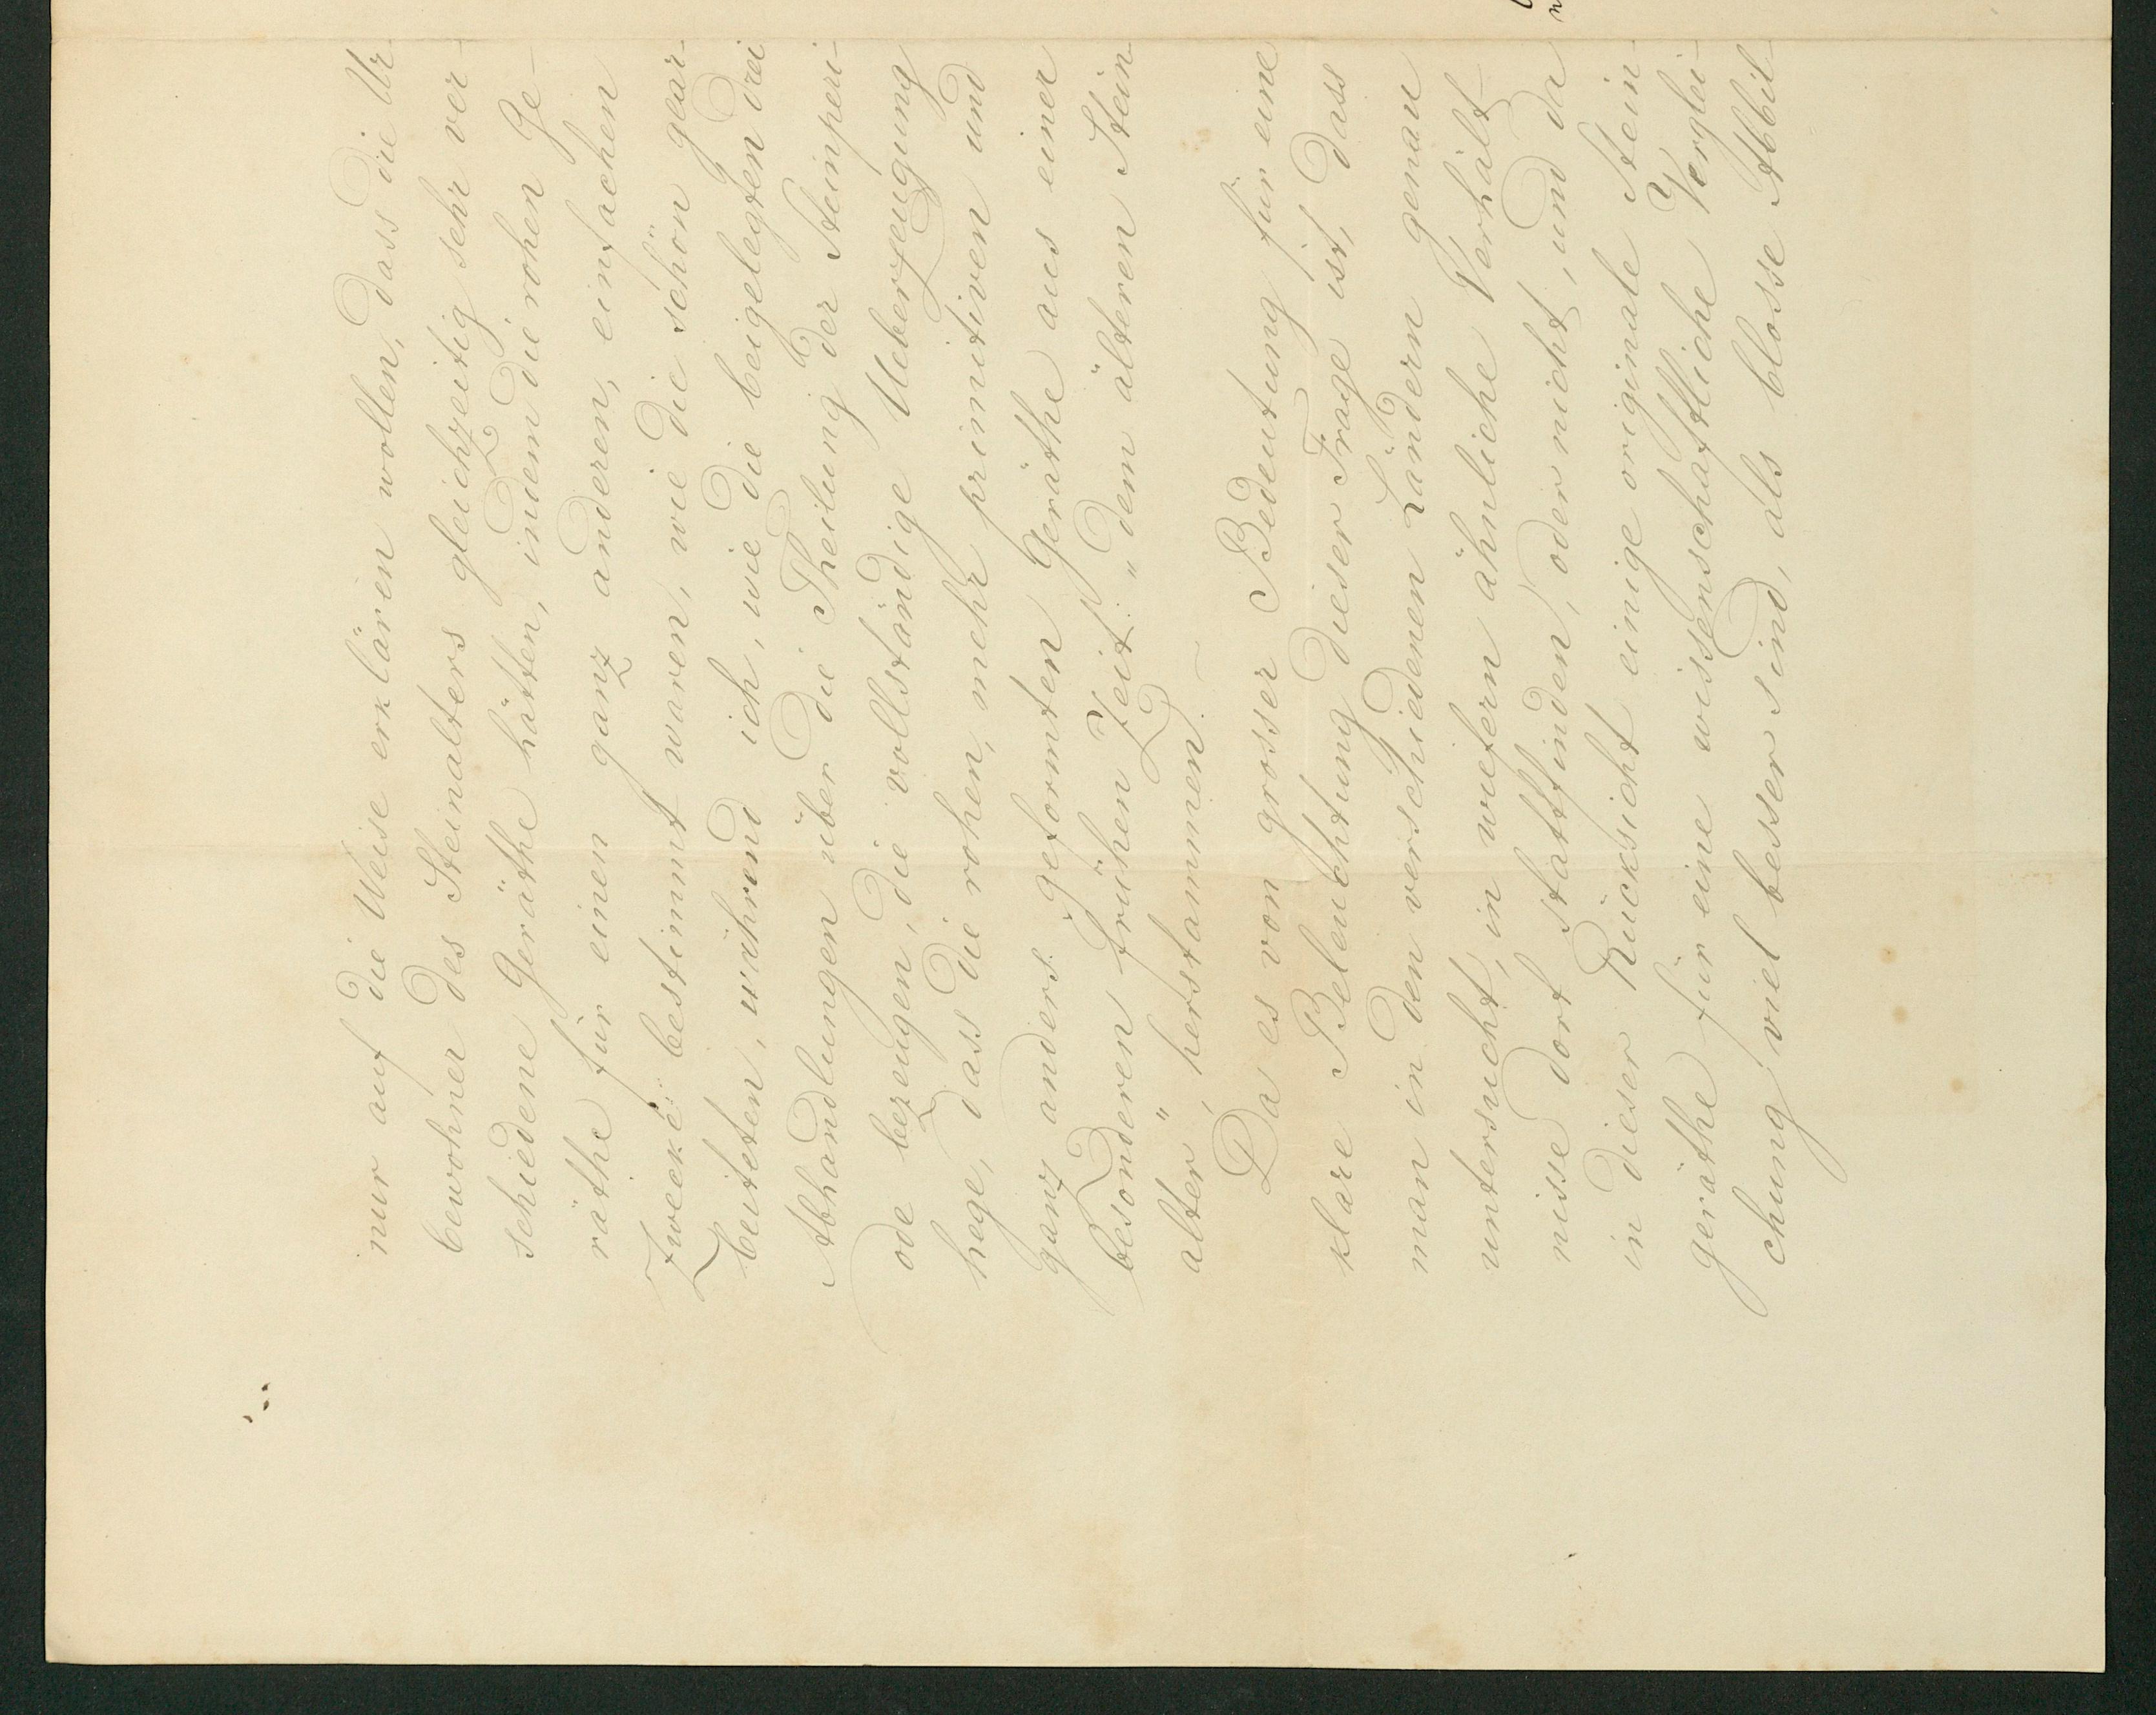 nur auf die Weise erklären wollen, dass die Ur-
bewohner des Steinalters gleichzeitig sehr ver-
schiedene Geräthe hätten, indem die rohen Ge-
räthe für einen ganz anderen, einfachen
Zweck bestimmt waren, wie die schön gear-
beiteten, während ich, wie die beigelegten drei
Abhandlungen über die Theilung der Steinperi-
ode bezeugen, die vollständige Ueberzeugung
hege, dass die rohen, mehr primitiven und
ganz anders geformten Geräthe aus einer
besonderen frühen Zeit: "dem älteren Stein-
alter", herstammen.
Da es von grosser Bedeutung für eine
klare Beleuchtung dieser Frage ist, dass
man in den verschiedenen Ländern genau
untersucht, in wiefern ähnliche Verhält-
nisse dort stattfinden, oder nicht, und da
in dieser Rücksicht einige originale Stein-
geräthe für eine wissenschaftliche Verglei-
chung viel besser sind, als blosse Abbil-